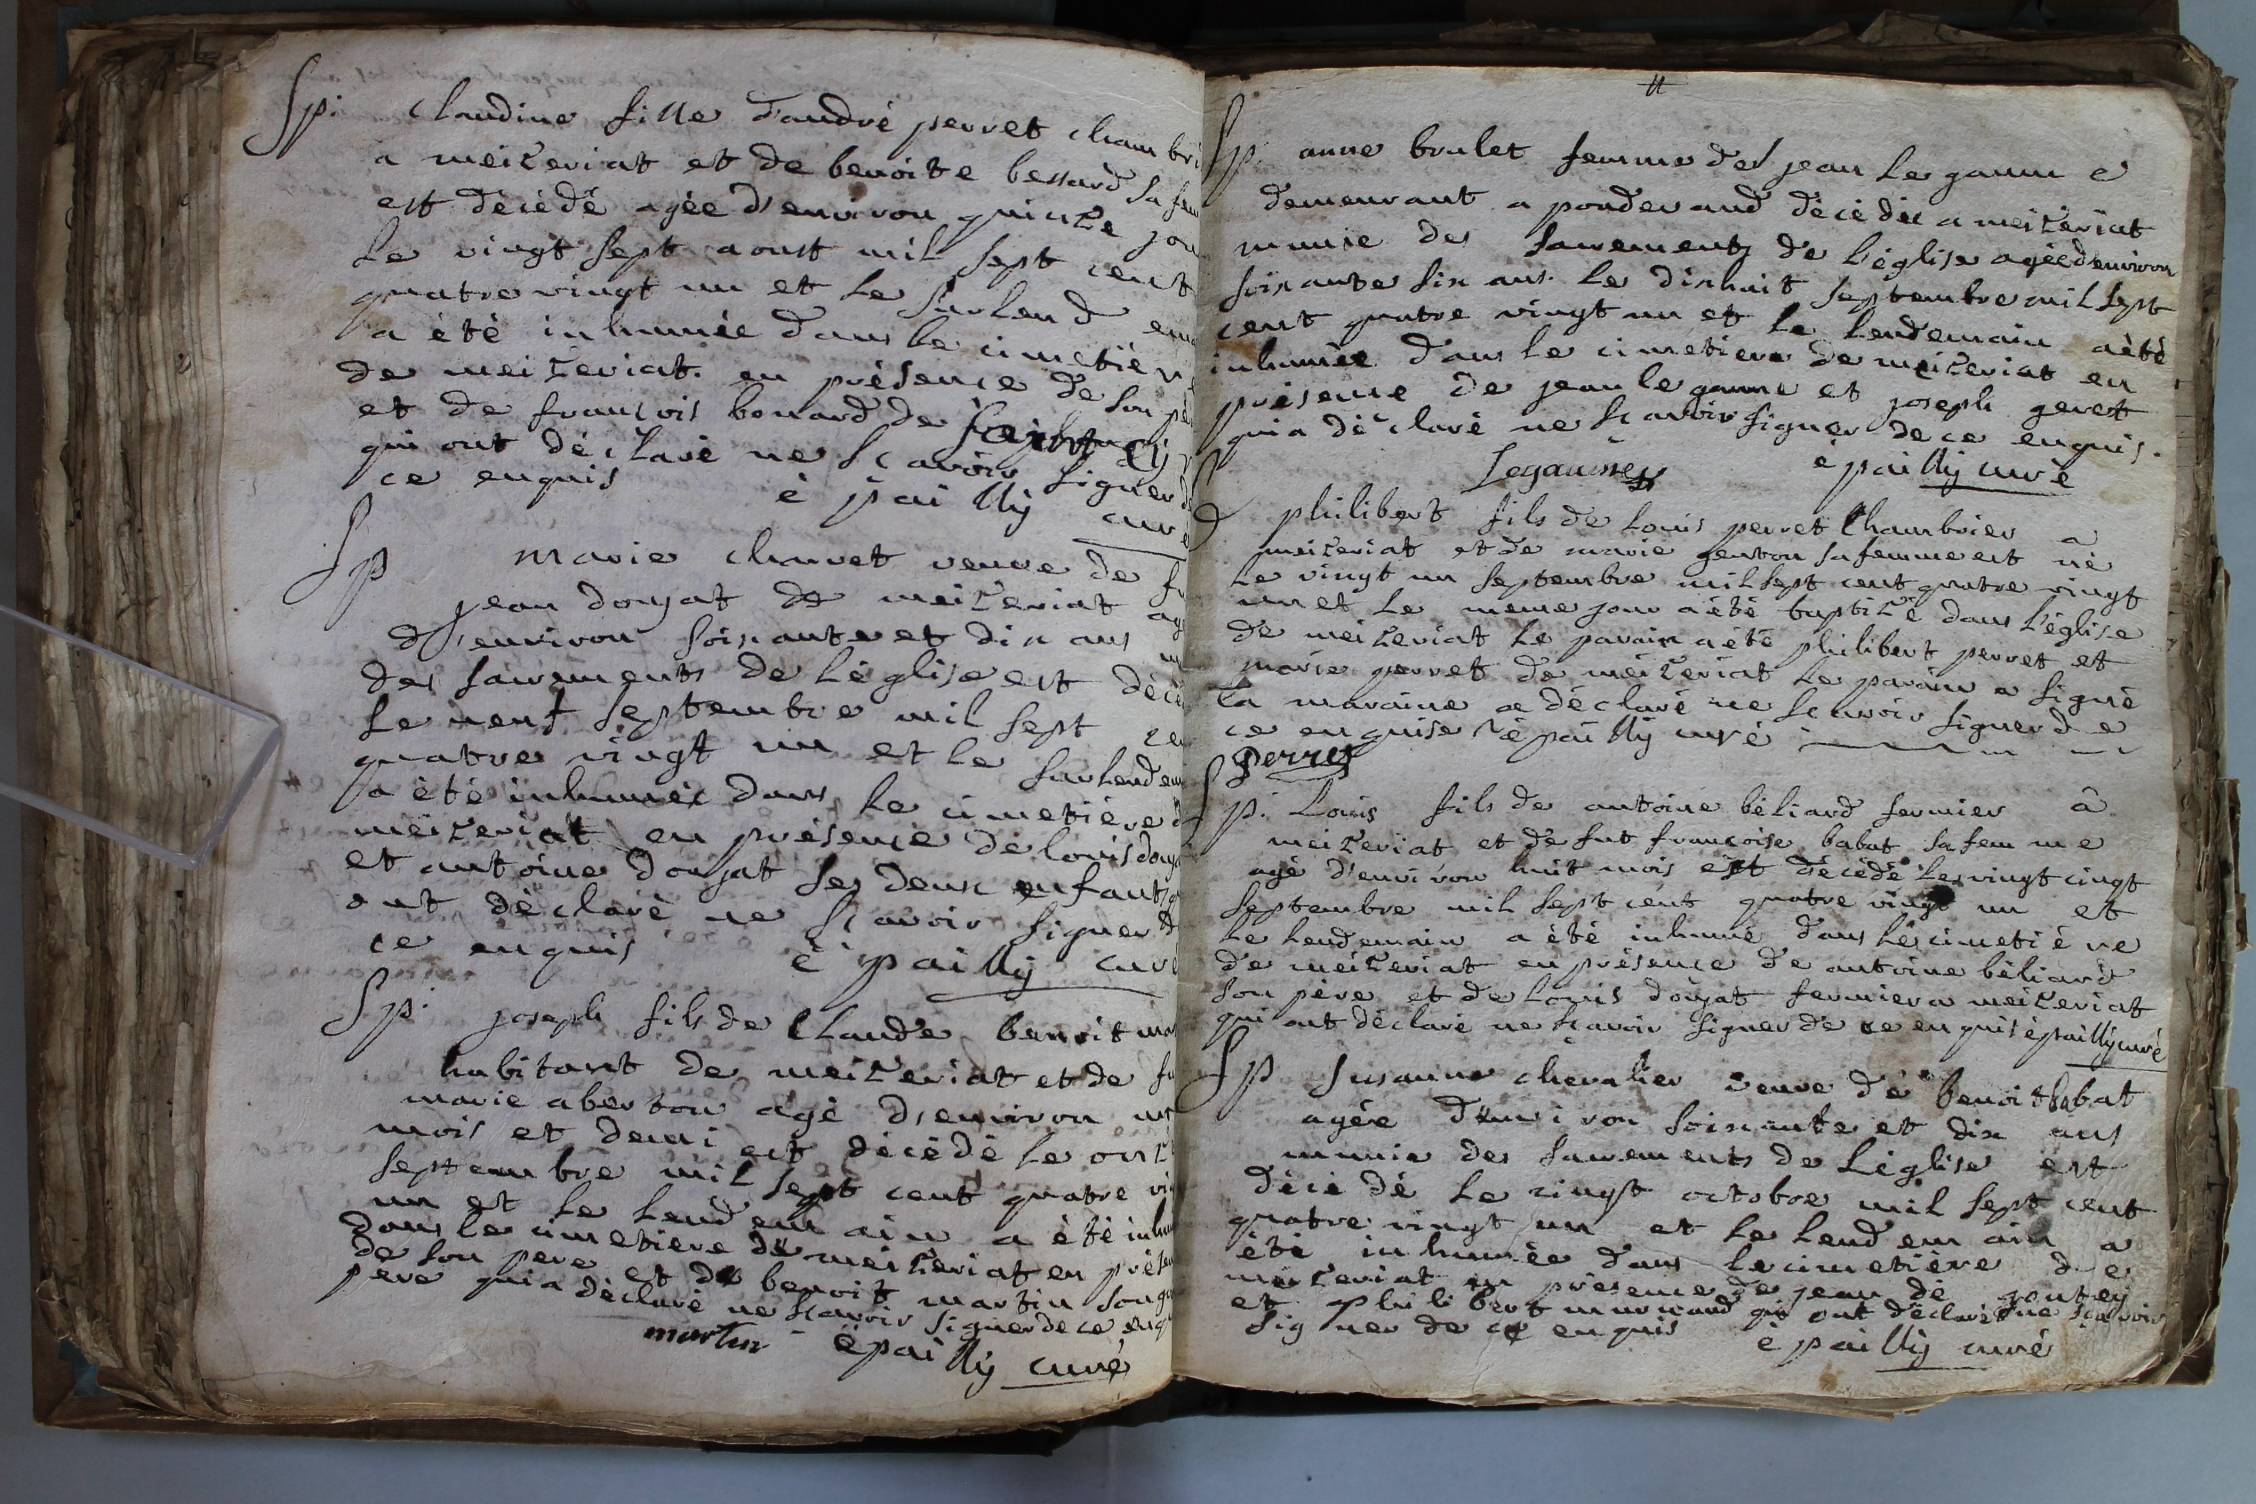 Sp. Claudine fille d'andré perret chambri
a meizeriat et de benoite bessard sa fem
est décédé agée d'environ quinze jou
le vingt sept aoust mil sept cent
quatre vingt un et le surlend ema
a été inhumée dans le cimetière
de meizeriat. en présence de son pè
et de françois bonard de
qui ont déclaré ne sçavoir signer d
ce enquis è pailly curé
Sp marie chanet veuve de fu
jean doujat de meizeriat agé
d'environ soixante et dix ans mu
des sacrements de l'église est décè
le neuf septembre mil sept cen
quatre vingt un et le surlendem
a été inhumée dans le cimetière d
meizeriat en présence de louis douja
et antoine doujat ses deux enfants q
ont déclaré ne sçavoir signer d
ce enquis è pailly curé
Sp. joseph fils de claude benoit mar
habitant de meizeriat et de fu
marie aberton agé d'environ un
mois et demi est décédé le onze
septembre mil sept cent quatre vin
un et le lend em ain a été inhu
dans le cimetiere de meizeriat en présen
de son pere et de benoit martin son gr
pere qui a déclaré ne sçavoir signer de ce enqu
martin è pailly curé
11
Sp. anne brulet femme de jean le gaune
demeurant a ponderand décédée a meizériat
munie des sacrements de l'église agée d'environ
soixante six ans. le dixhuit septembre mil sept
cent quatre vingt un et le lendemain a été
inhumée dans le cimetiere de meizeriat en
présence de jean le gaune et joseph geret
qui a déclaré ne sçavoir signer de ce enquis.
Legaune è pailly curé
philibert fils de louis perret Chambrier a
meizeriat et de marie genton sa femme est né
le vingt un septembre mil sept cent quatre vingt
un et le meme jour a été baptizé dans l'église
de meizeriat le parain a été philibert perret et
marie perret de meizeriat le parain a signé
la maraine a déclaré ne sçavoir signer de
ce enquise è pailly curé
perret
Sp. Louis fils de antoine béliard fermier à
meizeriat et de fut françoise babat sa femme
agé d'environ huit mois est décédé le vingt cingt
septembre mil sept cent quatre vingt un et
le lendemain a été inhumé dans le cimetière
de meizeriat en présence de antoine béliard
son père et de Louis doujat fermier a meizeriat
qui ont déclaré ne sçavoir signer de ce enquis è pailly curé
Sp Susanne chevalier veuve de benoit babat
agée d'environ soixante et dix ans
munie des sacrements de L'église est
décédé le vingt octobre mil sept cent
quatre vingt un et le lend em ain a
été inhumée dans le cimetière de
meizeriat en présence de jean de joutey
et philibert murinand qui ont déclaré ne sçavoir
signer de ce enquis è pailly curé